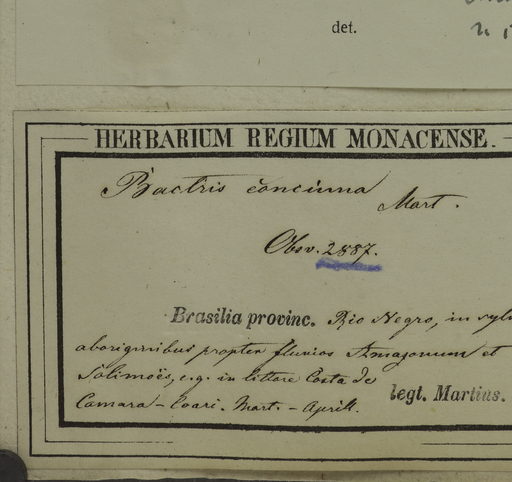 det.
HERBARIUM REGIUM MONACENSE.
Bactris concinna
Mart.
Obsv. 2887.
Brasilia provinc. Rio Negro, in sylv
aboriginibus propter fluvios Amazonum et
Solimoës, e.g. in littore Costa de
Camara - Coari. Mart. - Aprili.
legt. Martius.